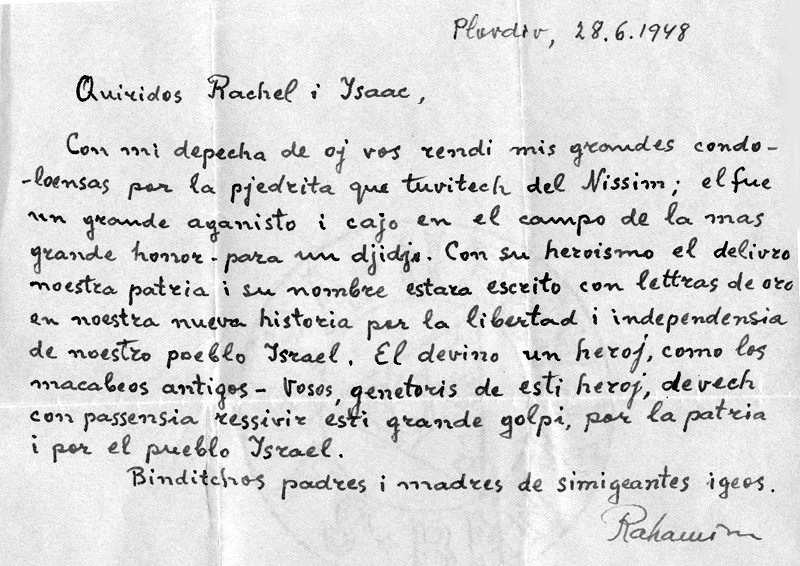 Plovdiv, 28.6.1948
Quiridos Rachel i Isaac,
Con mi depecha de oj vos rendi mis grandes condo-
-loensas por la pjedrita que tuvitech del Nissim; el fue
un grande aganisto i cajo en el campo de la mas
grande honor - para un djidjo. Con su heroismo el delivro
noestra patria i su nombre estara escrito con lettras de oro
en noestra nueva historia por la libertad i independensia
de noestro poeblo Israel. El devino un heroj, como los
macabeos antigos - Vosos, genetoris de esti heroj, devech
con passensia ressivir esti grande golpi, por la patria
i por el pueblo Israel.
Binditchos padres i madres de simigeantes igeos.
Rahamim